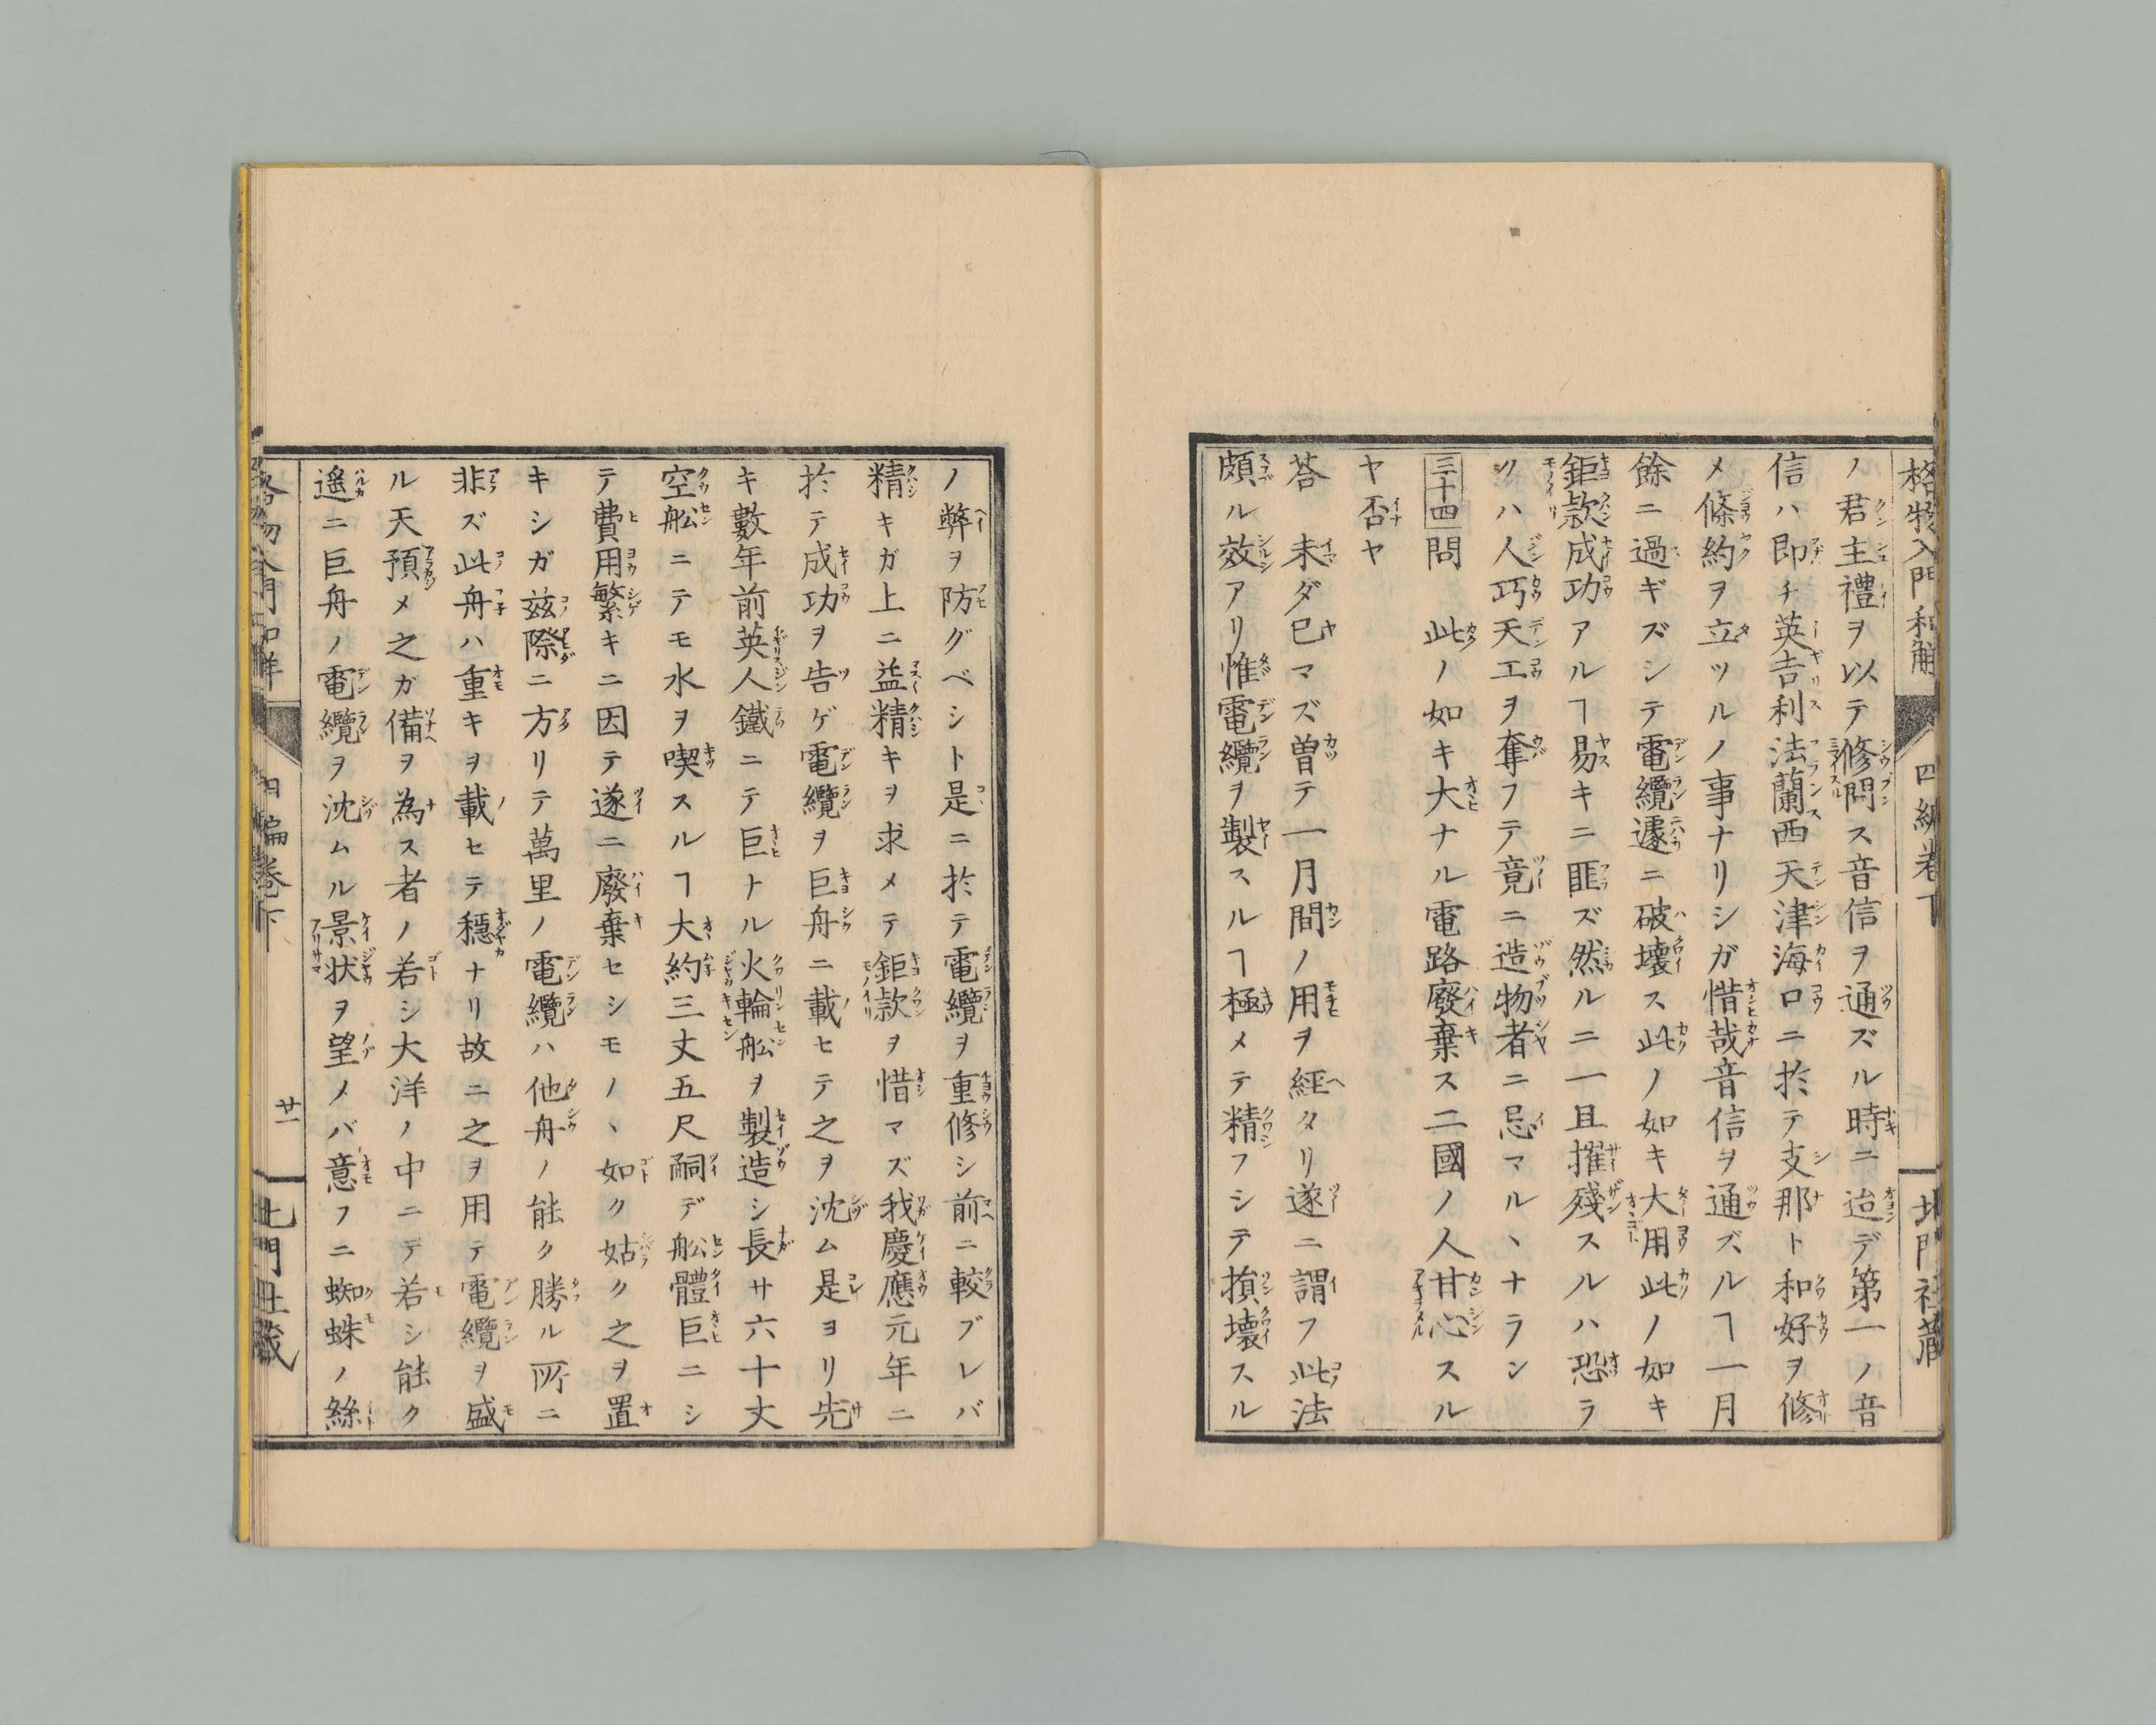 格物入門和解 四編巻下 北門社藏
ノ君主禮ヲ以テ修問ス音信ヲ通ズル時ニ迨デ第一ノ音
信ハ即チ英吉利法蘭西天津海口ニ於テ支那ト和好ヲ修
メ條約ヲ立ツルノ事ナリシガ惜哉音信ヲ通ズルヿ一月
餘ニ過ギズシテ電纜遽ニ破壞ス此ノ如キ大用此ノ如キ
鉅款成功アルヿ易キニ匪ズ然ルニ一旦摧殘スルハ恐ラ
クハ人巧天工ヲ奪フテ竟ニ造物者ニ忌マルヽナラン
三十四問 此ノ如キ大ナル電路廢棄ス二國ノ人甘心スル
ヤ否ヤ
荅 未ダ已マズ曽テ一月間ノ用ヲ經タリ遂ニ謂フ此法
頗ル效アリ惟電纜ヲ製スルヿ極メテ精フシテ損壞スル
ノ弊ヲ防グベシト是ニ於テ電纜ヲ重修シ前ニ較ブレバ
精キガ上ニ益精キヲ求メテ鉅款ヲ惜マズ我慶應元年ニ
於テ成功ヲ告ゲ電纜ヲ巨舟ニ載セテ之ヲ沈ム是ヨリ先
キ數年前英人鐵ニテ巨ナル火輪舩ヲ製造シ長サ六十丈
空舩ニテモ水ヲ喫スルヿ大約三丈五尺嗣デ舩體巨ニシ
テ費用繁キニ因テ遂ニ廢棄セシモノヽ如ク姑ク之ヲ置
キシガ茲際ニ方リテ萬里ノ電纜ハ他舟ノ能ク勝ル所ニ
非ズ此舟ハ重キヲ載セテ穩ナリ故ニ之ヲ用テ電纜ヲ盛
ル天預メ之ガ備ヲ為ス者ノ若シ大洋ノ中ニテ若シ能ク
遙ニ巨舟ノ電纜ヲ沈ムル景状ヲ望メバ意フニ蜘蛛ノ絲
格物入門和解 四編巻下 廿一 北門社藏